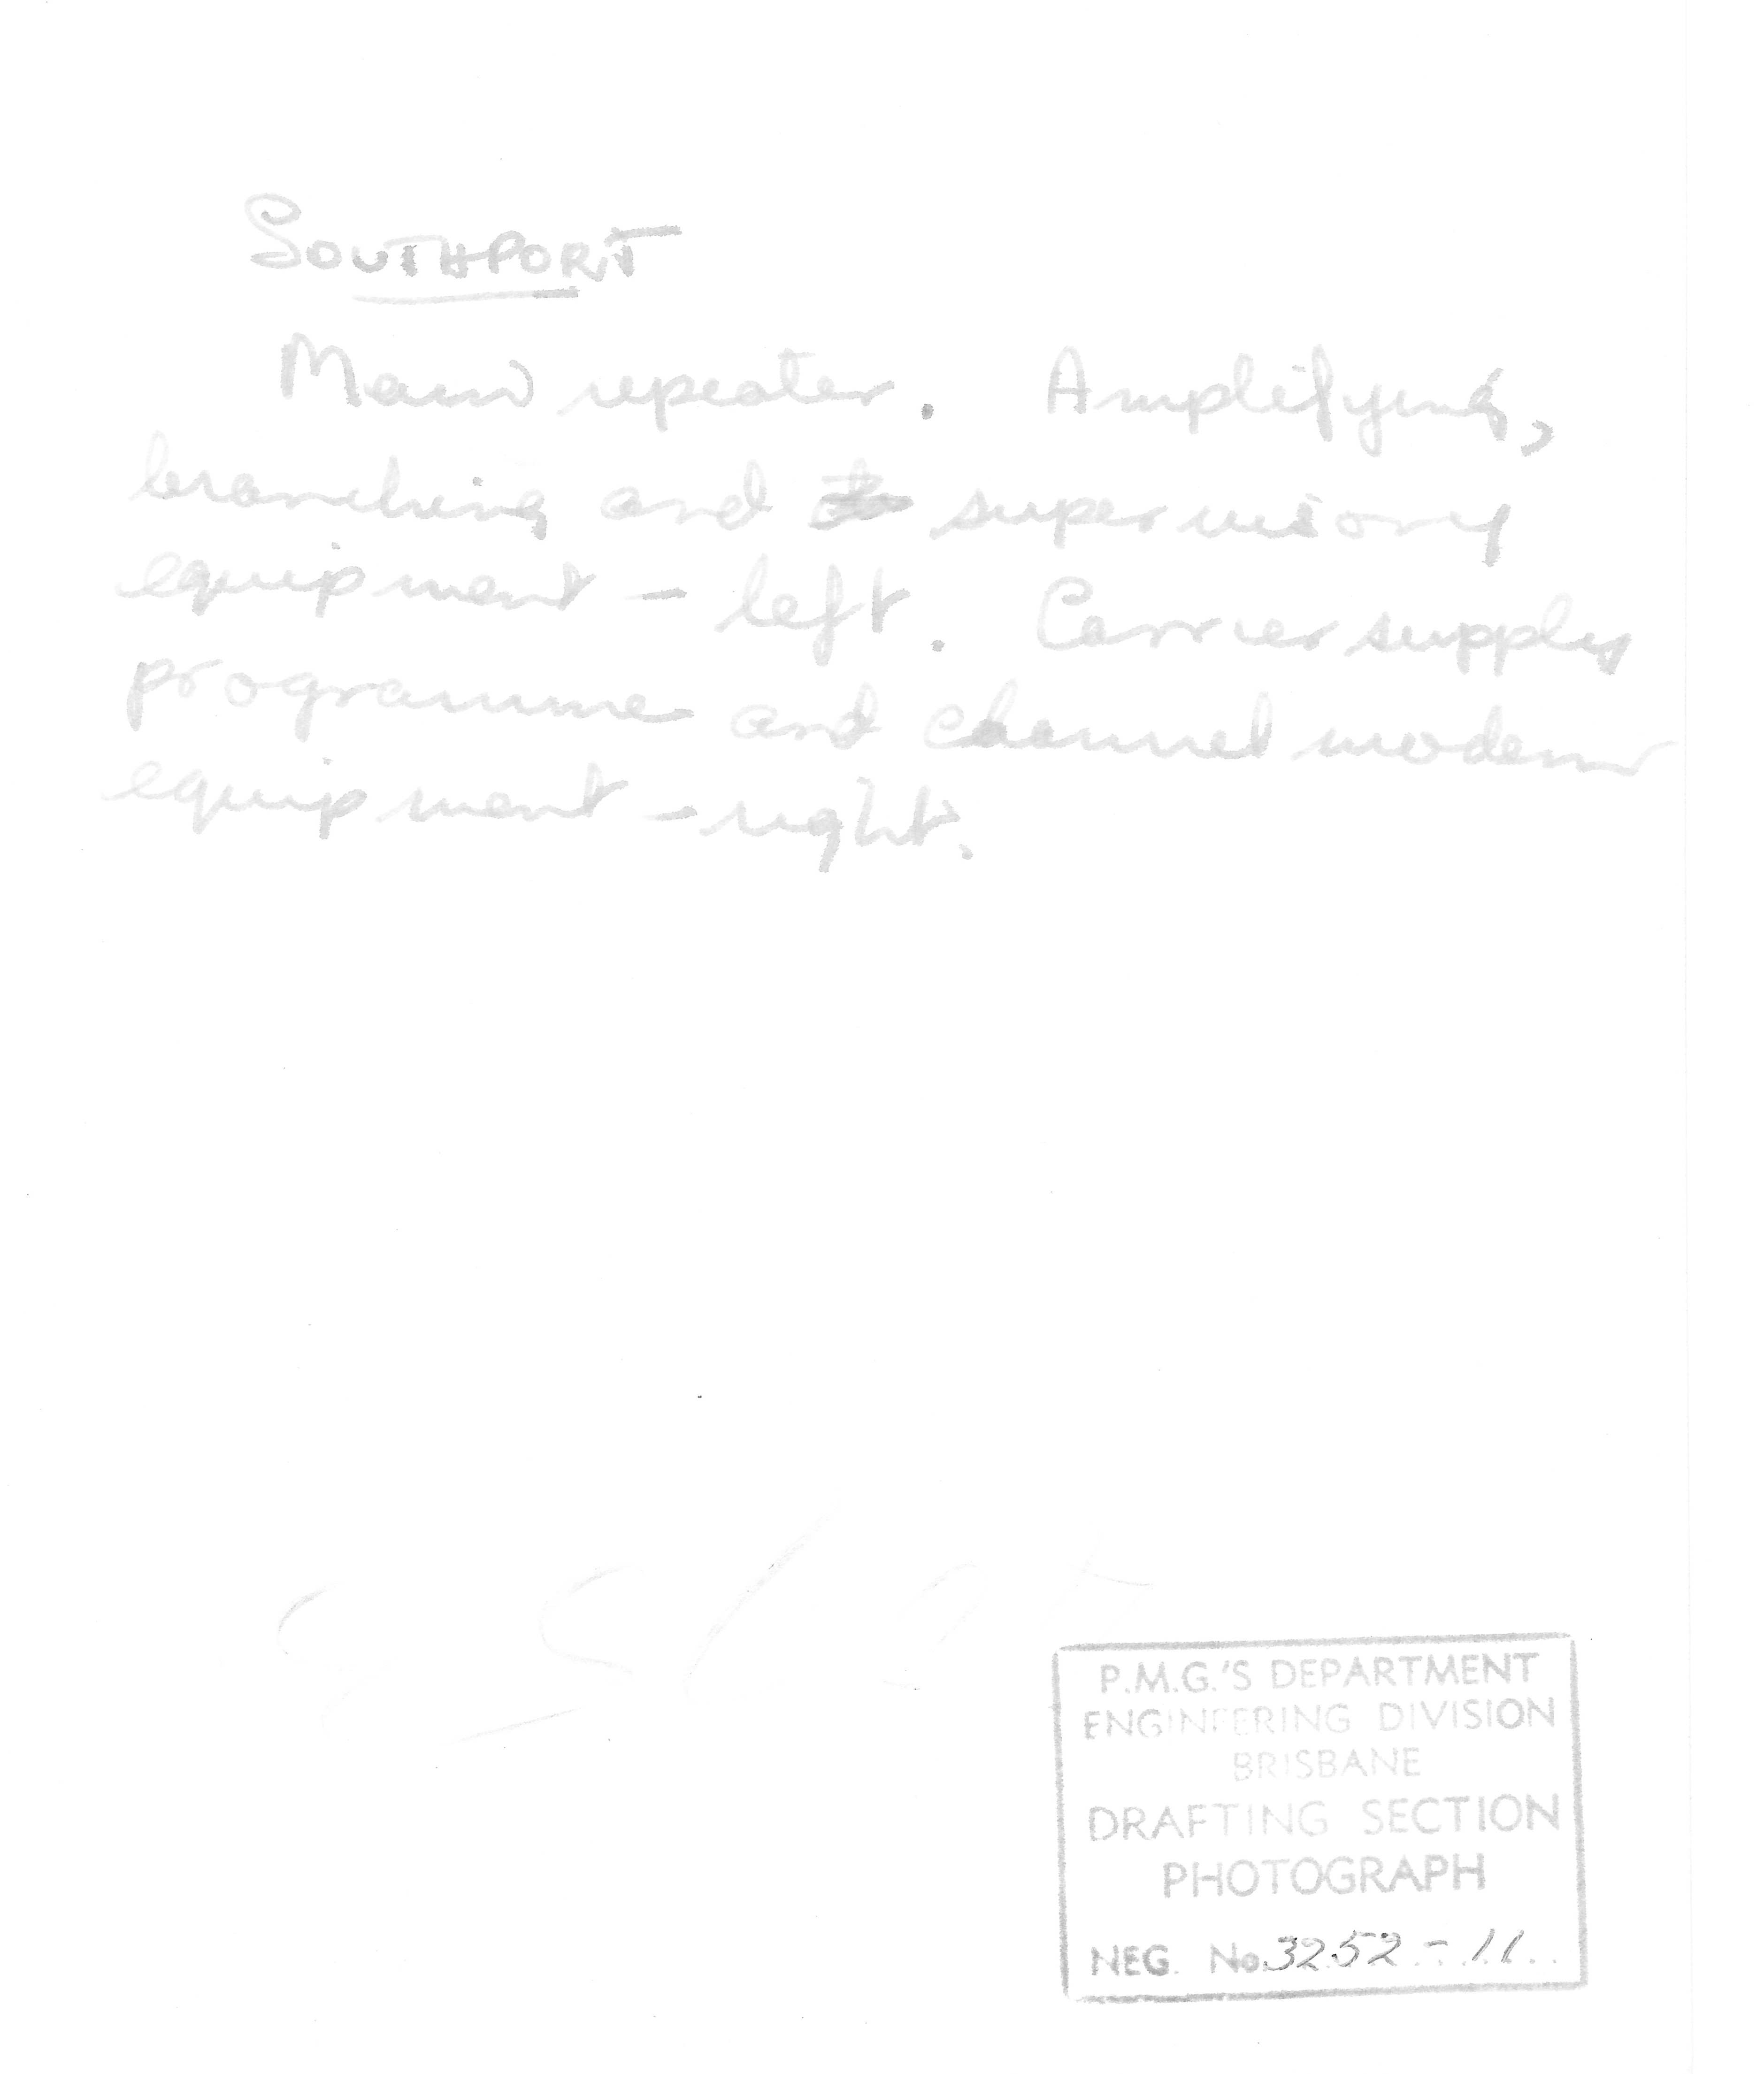 SOUTHPORT
Main repeater. Amplifying,
branching and supervisory
equipment - left. Carrier supply
programme and channel modem
equipment - right.
P.M.G.'S DEPARTMENT
ENGINEERING DIVISION
BRISBANE
DRAFTING SECTION
PHOTOGRAPH
NEG. No. 3252 - 11